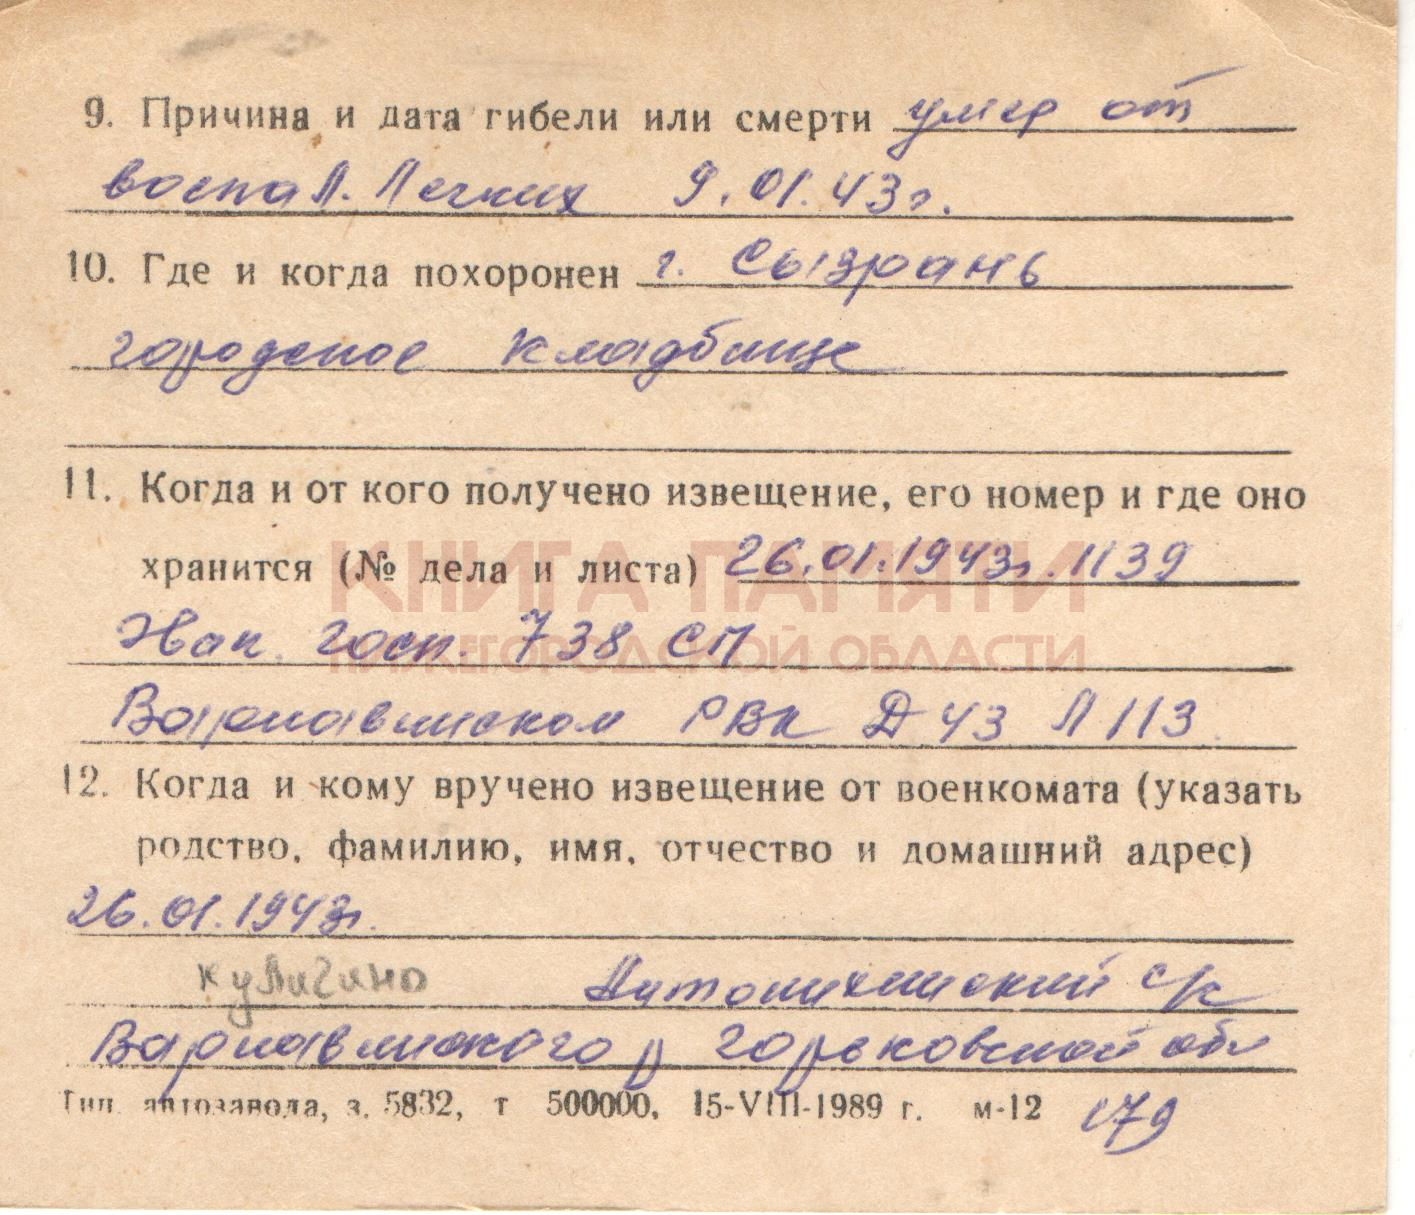 9. Причина и дата гибели или смерти умер от
воспал. легких 9.01.43г.
10. Где и когда похоронен г. Сызрань
городское кладбище
11. Когда и от кого получено извещение, его номер и где оно
хранится (№ дела и листа) 26.01.1943г. 1139
КНИГА ПАМЯТИ
НИЖЕГОРОДСКОЙ ОБЛАСТИ
Эвак. госп. 738 СП
Варнавинском РВК Д 43 Л 113
12. Когда и кому вручено извещение от военкомата (указать
родство, фамилию, имя, отчество и домашний адрес)
26.01.1943г.
Кулигино Антонихинский с/с
Варнавинского р Горьковской обл
Тип. автозавода, з. 5832, т 500000, 15-VIII-1989 г. м-12 179